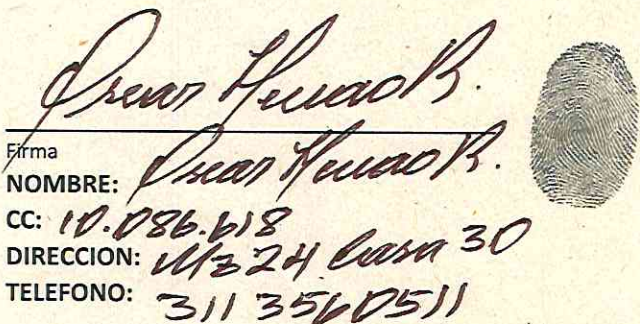 Oscar Henao R.
Firma
NOMBRE: Oscar Henao R.
CC: 10.086.618
DIRECCION: Mz 24 Casa 30
TELEFONO: 311 3560511